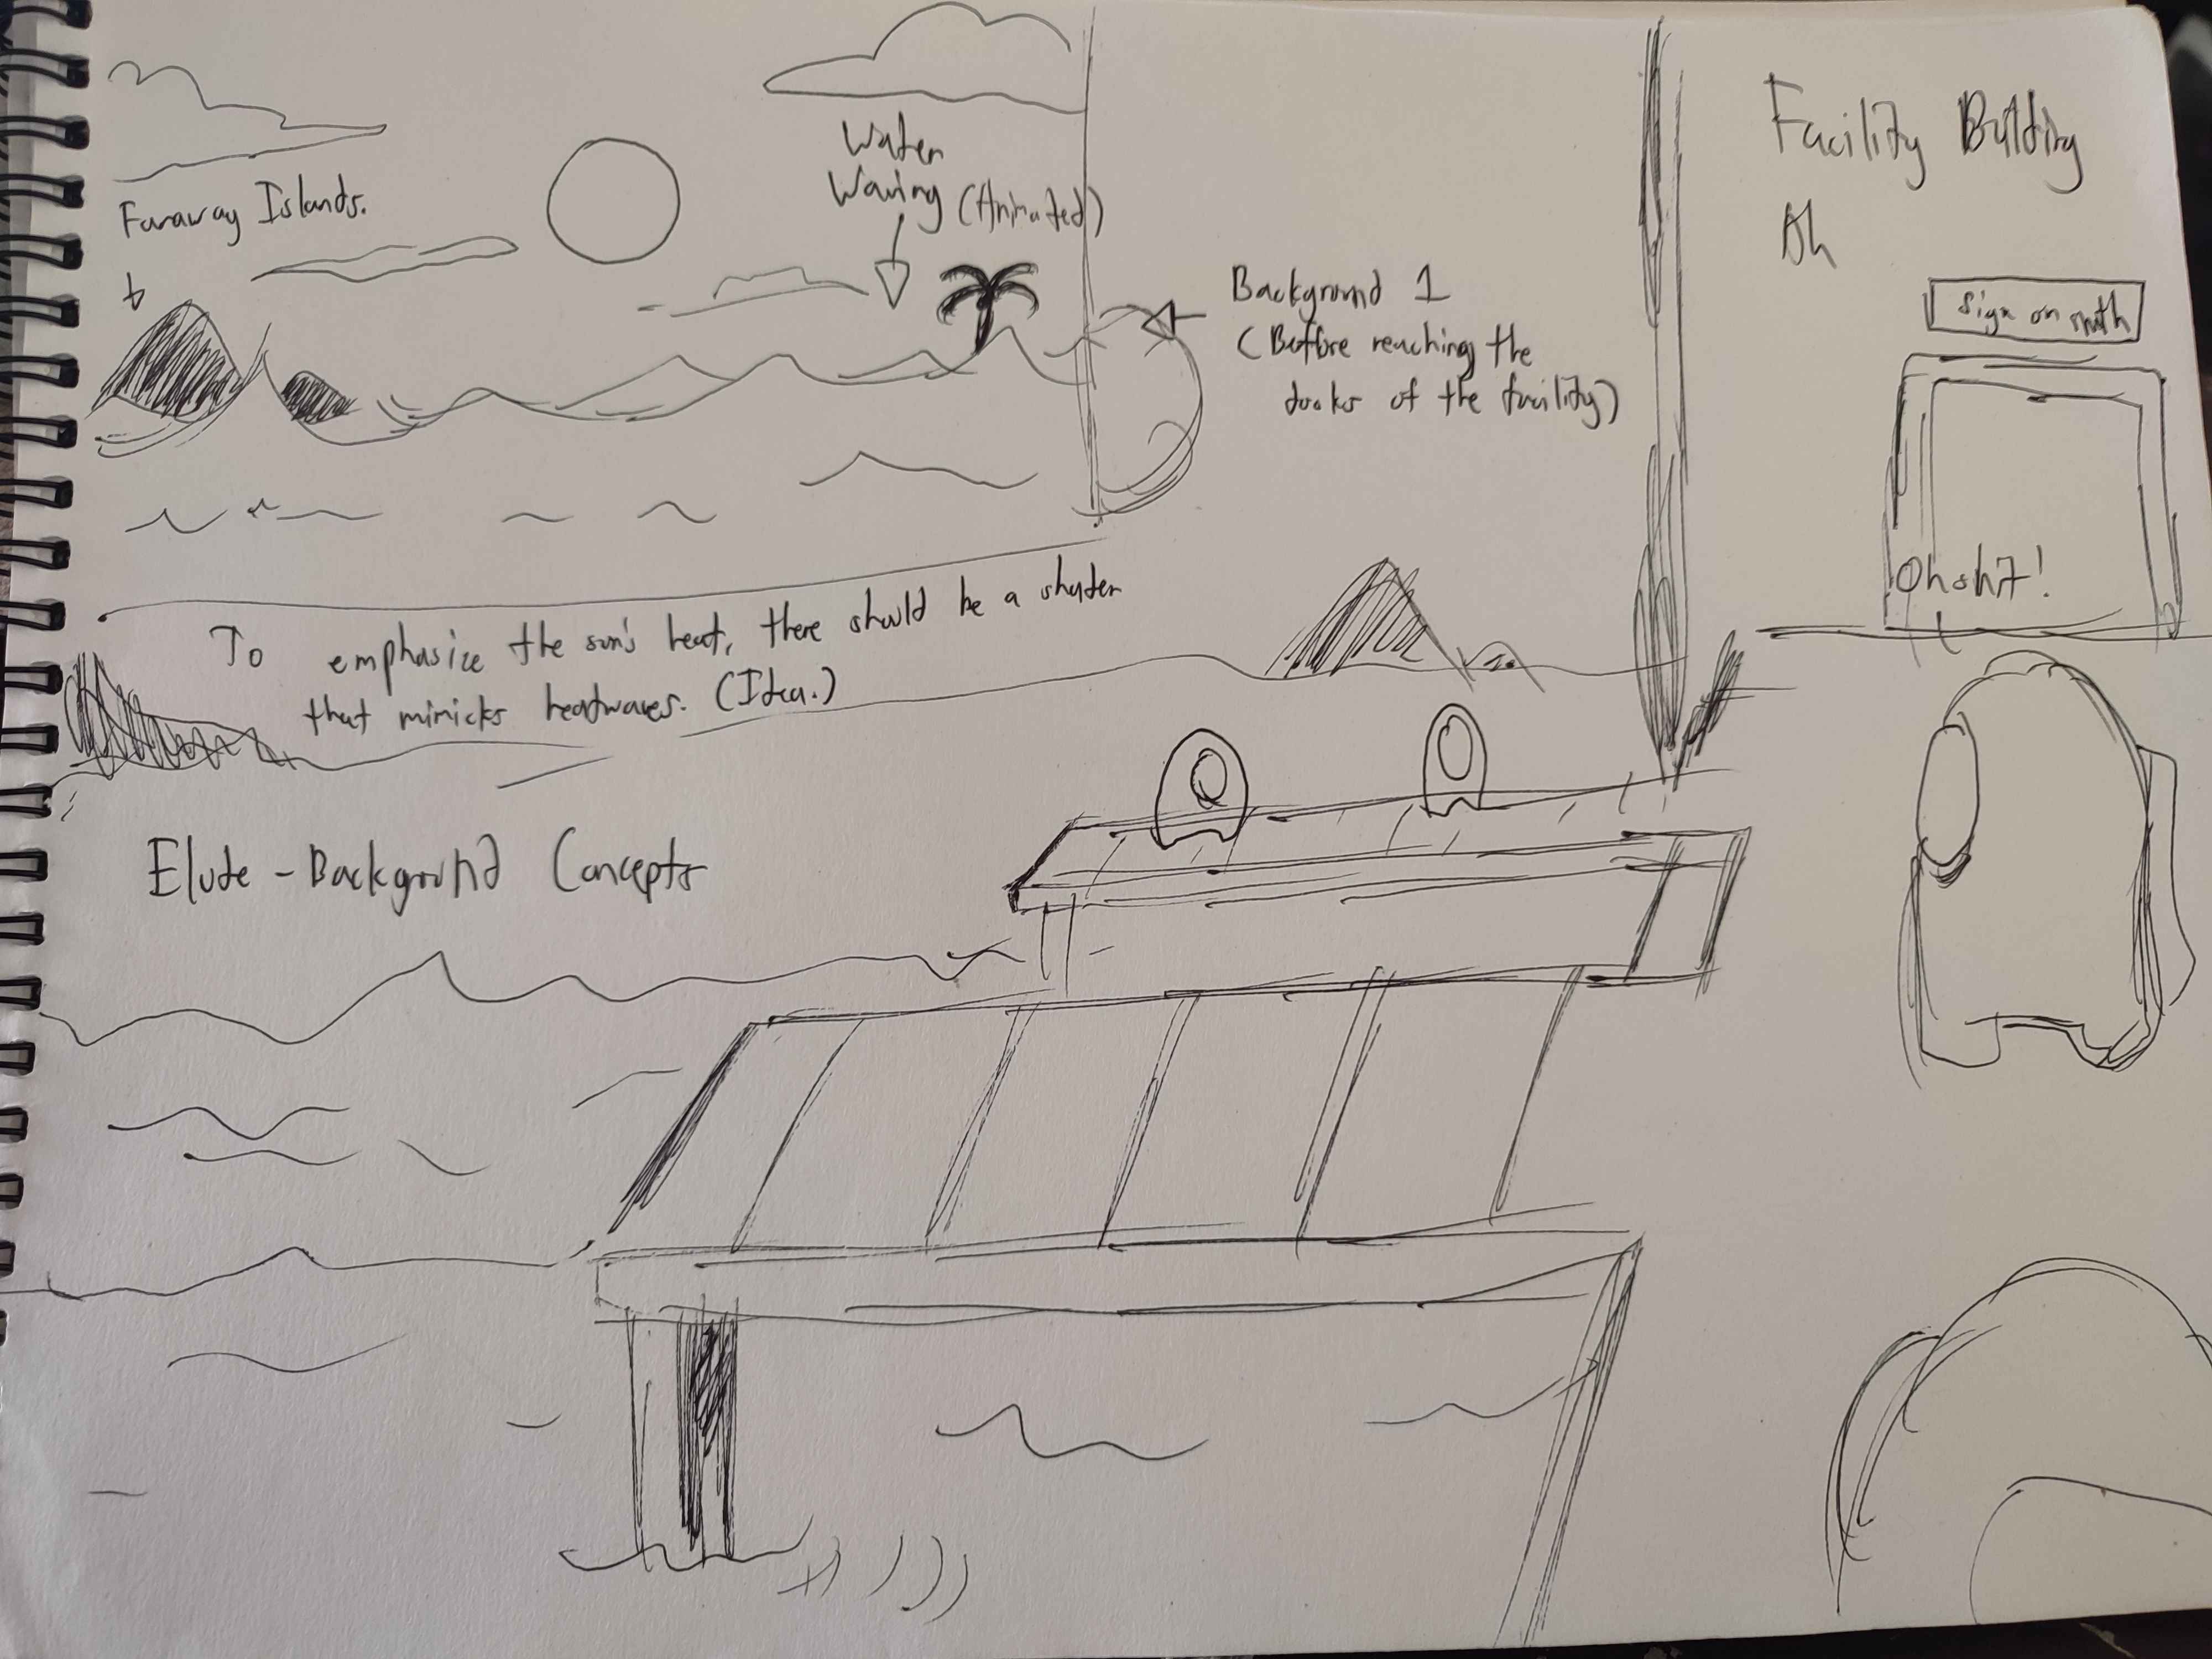 Faraway Islands.
Water
Waving (Animated)
Background 1
(Before reaching the
docks of the facility)
Facility Building
Ah
Sign on
Oh sh7!
To emphasize the sun's heat, there should be a shader
that mimicks heatwaves. (Idea.)
Elude - Background Concepts